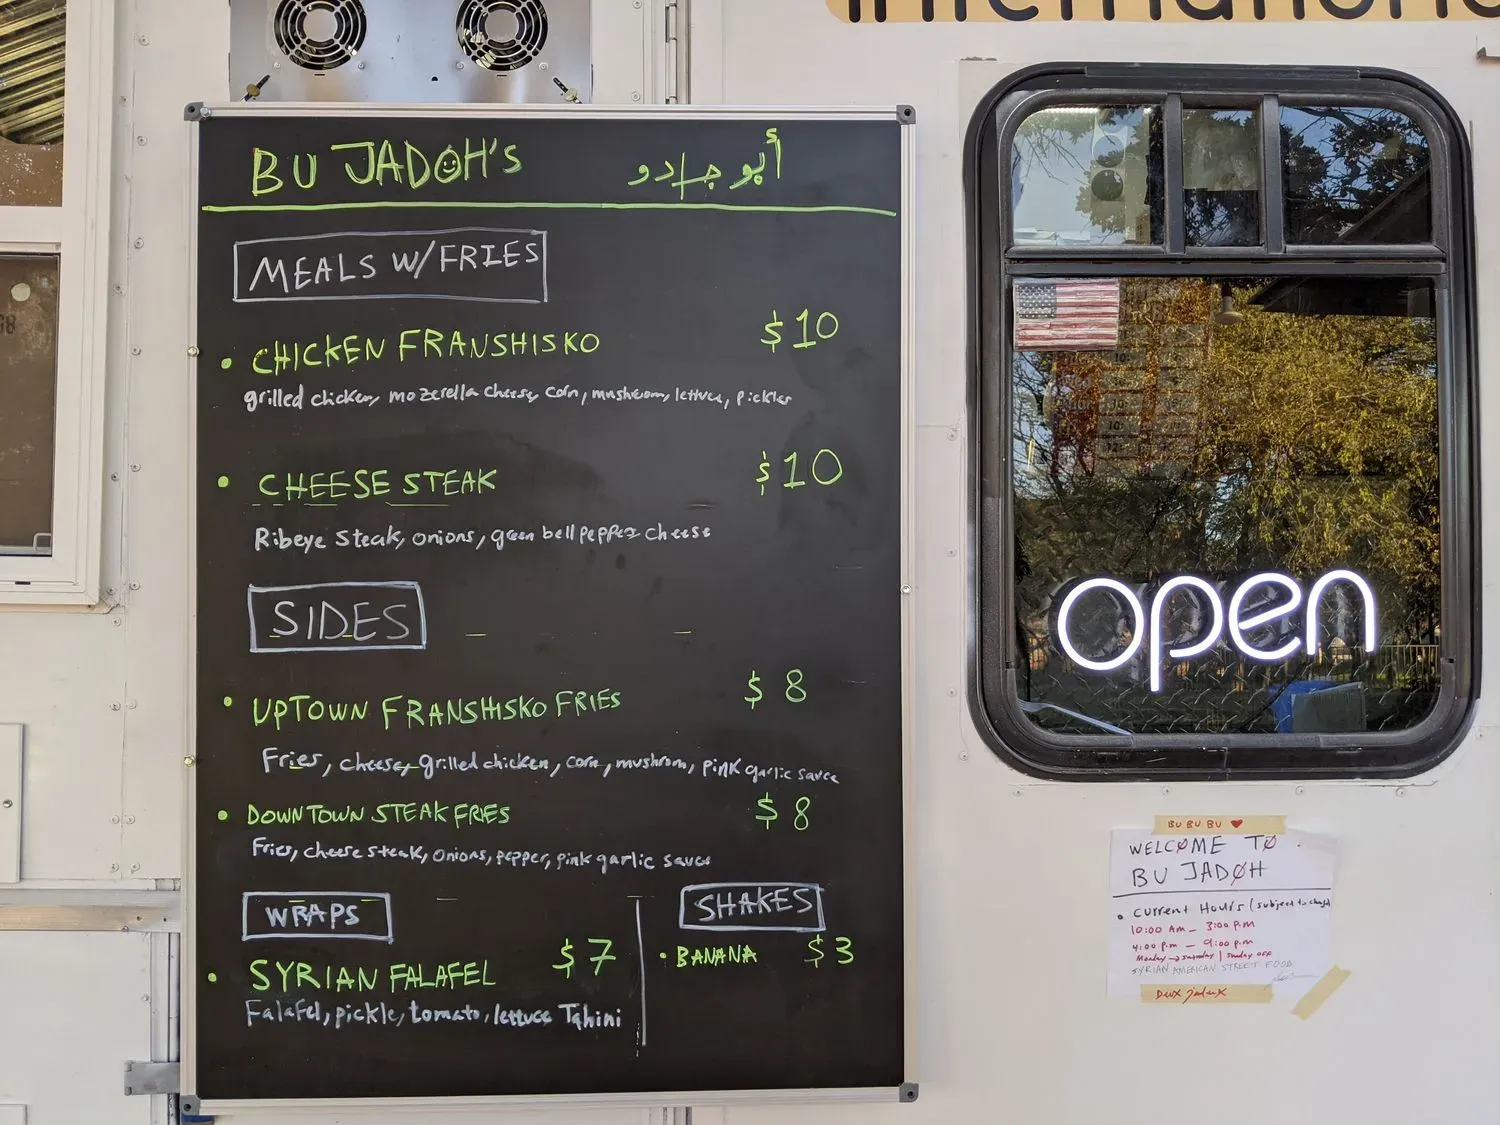 International
BU JADOH'S أبو جادو
MEALS W/FRIES
• CHICKEN FRANSHISKO $10
grilled chicken, mozerella cheese, corn, mushroom, lettuce, pickles
• CHEESE STEAK $10
Ribeye steak, onions, green bell pepper cheese
SIDES
• UPTOWN FRANSHISKO FRIES $8
Fries, cheese, grilled chicken, corn, mushrom, pink garlic sauce
• DOWNTOWN STEAK FRIES $8
Fries, cheese steak, onions, pepper, pink garlic sauce
WRAPS
• SYRIAN FALAFEL $7
Falafel, pickle, tomato, lettuce Tahini
SHAKES
• BANANA $3
open
BU BU BU ♥
WELCØME TØ
BU JADØH
• Current Hours (subject to change)
10:00 Am – 3:00 P.m
4:00 p.m – 9:00 p.m
Monday → saturday | Sunday OFF
SYRIAN AMERICAN STREET FOOD